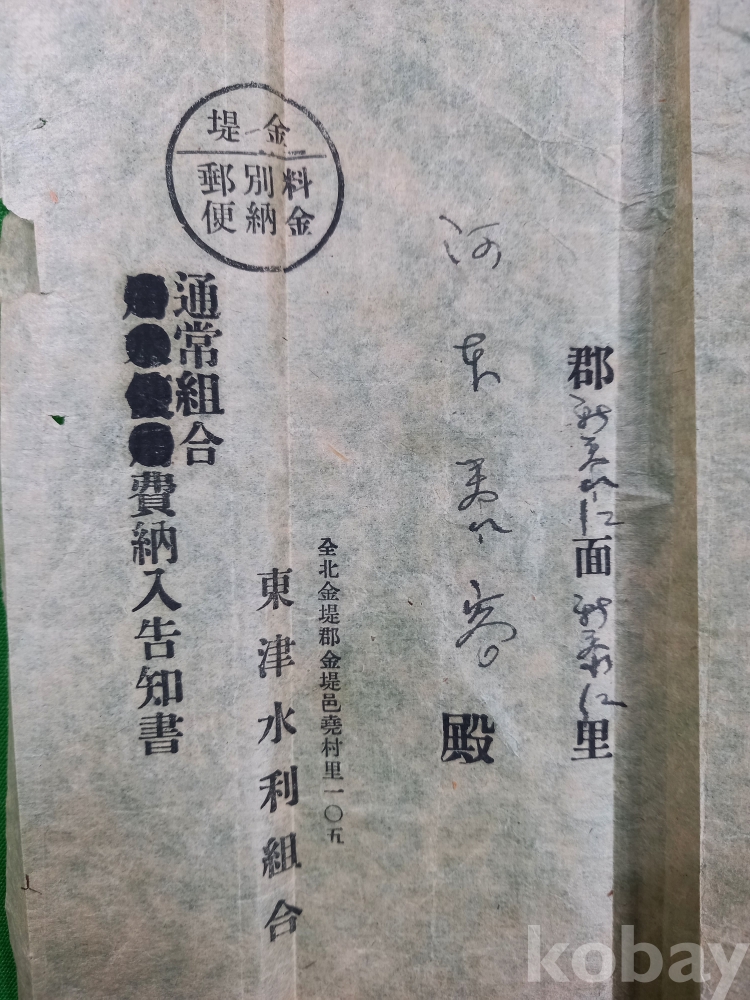 郡 新泰仁 面 新泰仁 里
河東 殿
全北金堤郡金堤邑堯村里一〇五
東津水利組合
金堤
料金
別納
郵便
通常組合
費納入告知書
kobay